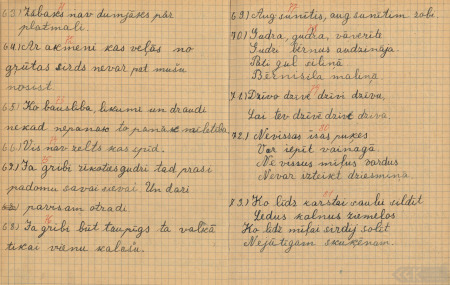 63.) Zābaks nav dumjāks pār
platmali.
64.) Ar akmeni kas veļās no
grūtas sirds nevar pat mušu
nosist
65.) Ko bauslība, likume un draudi
nekad nepanāk to panāk mīlestība
66.) Vis nav zelts kas spīd.
67.) Ja gribi rīkoties gudri tad prasi
padomu savai sievai. Un dari
pavisam otrādi
68.) Ja gribi būt taupīgs ta valkā
tikai vienu kalošu.
69.) Aug sunītis, aug sunītim zobi.
70.) Gudra, gudra, vāverīte
Gudri bērnus audzināja
Pati guļ siliņā
Bērni sila maliņā
71.) Dzīvo dzīvē dzīvi dzīvu,
Lai tev dzīvē dzīve dzīva.
72.) Nevissas īsās pukes
Var iepīt vainagā
Ne vissus mīļus vardus
Nevar izteikt dziesmiņā.
73.) Ko līdz karstai saulei sildīt
Ledus kalnus ziemeļos
Ko līdz mīļai sirdij solīt
Nejūtīgam skuķēnam.